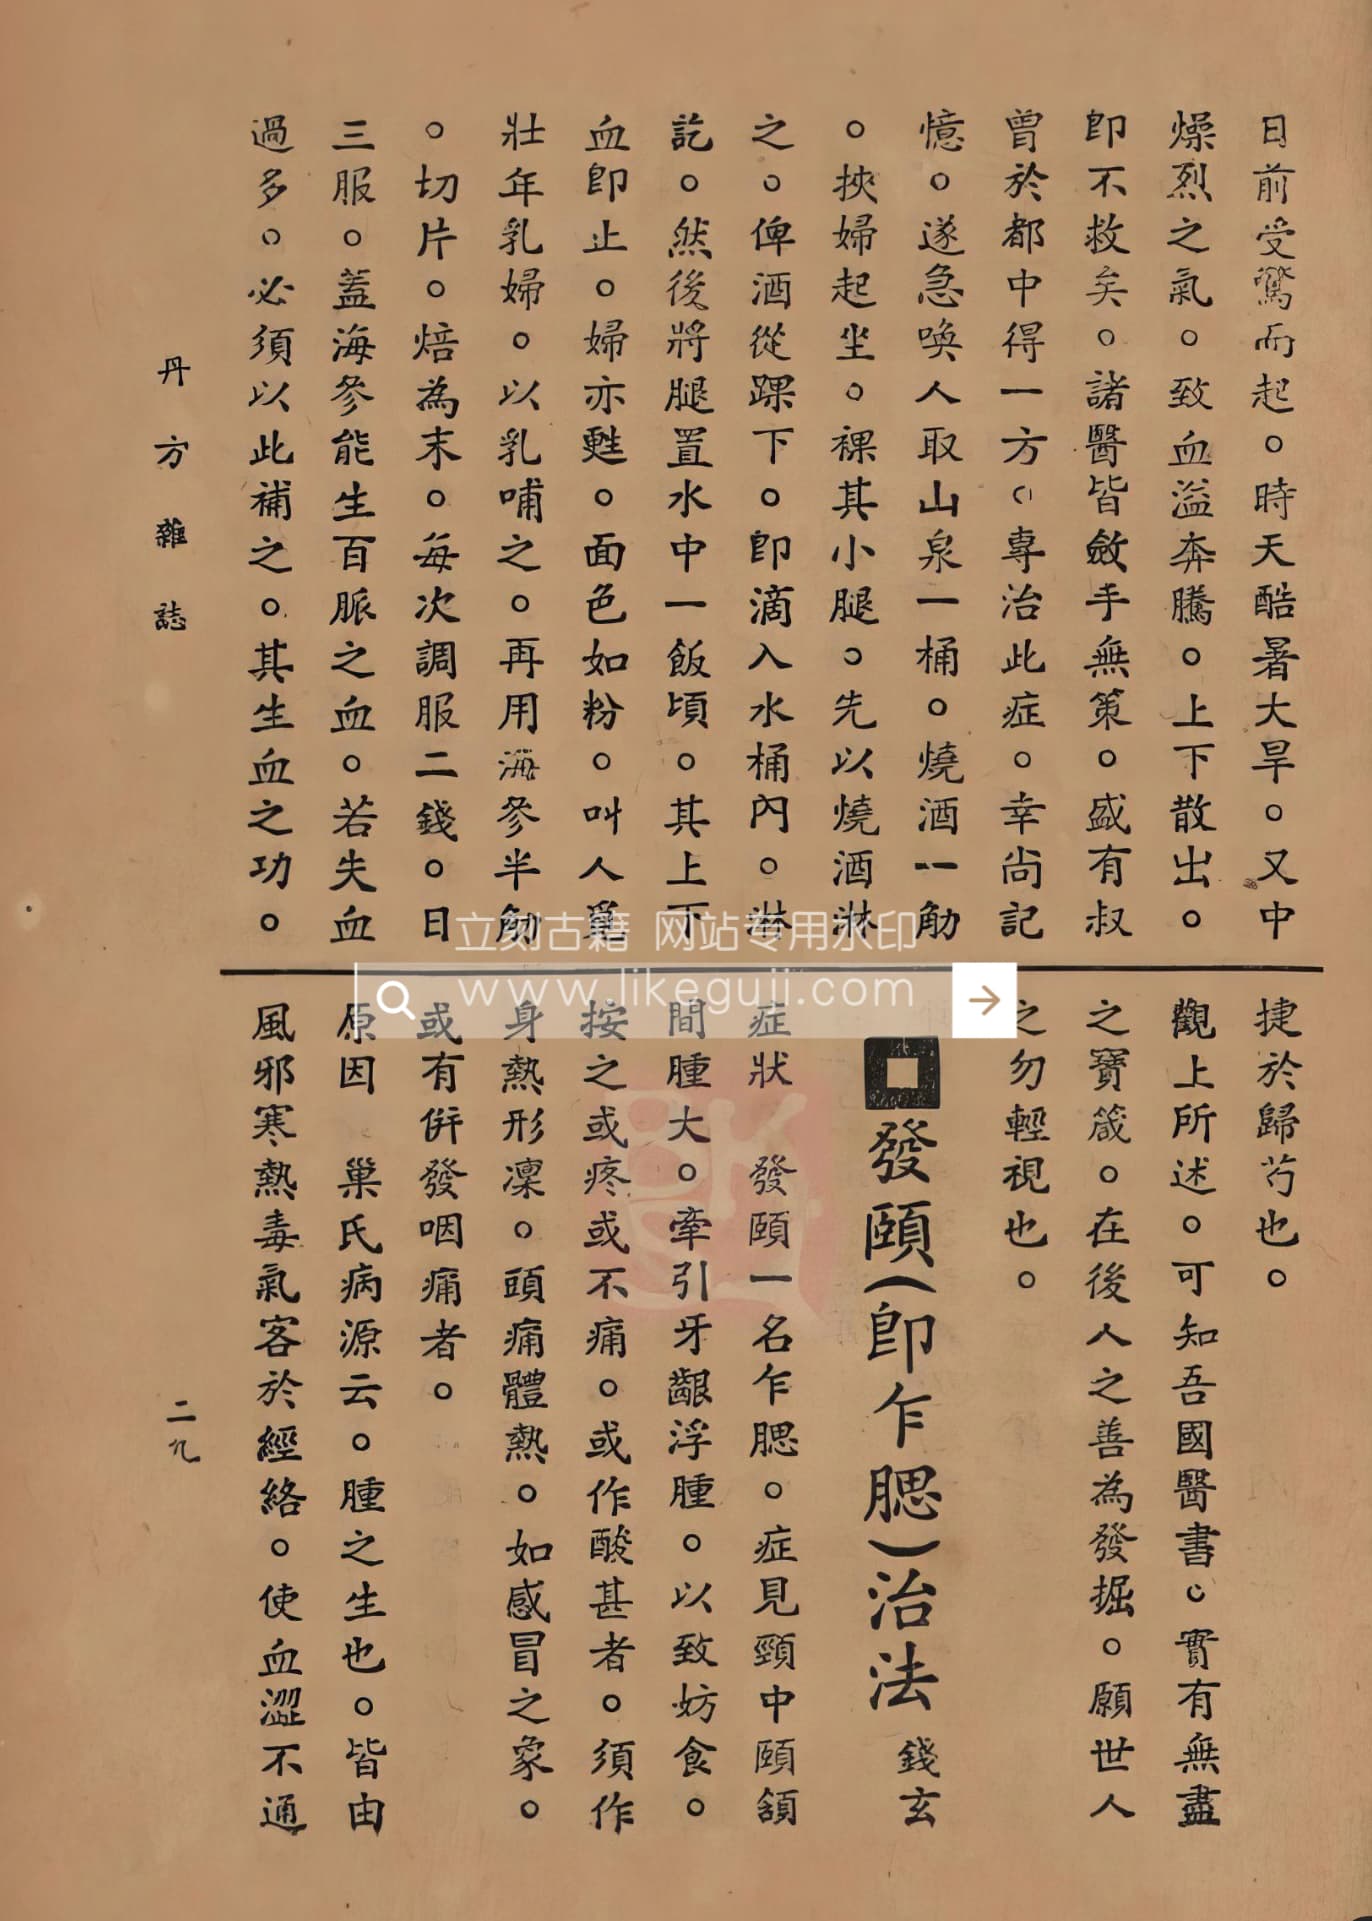 日前受驚而起。時天酷暑大旱。又中
燥烈之氣。致血溢奔騰。上下散出。
卽不救矣。諸醫皆斂手無策。盛有叔
曾於都中得一方。專治此症。幸尙記
憶。遂急喚人取山泉一桶。燒酒一觔
。挾婦起坐。裸其小腿。先以燒酒淋
之。俾酒從踝下。卽滴入水桶內。淋
訖。然後將腿置水中一飯頃。其上下
血卽止。婦亦甦。面色如粉。叫人覓
壯年乳婦。以乳哺之。再用海參半觔
。切片。焙為末。每次調服二錢。日
三服。蓋海參能生百脈之血。若失血
過多。必須以此補之。其生血之功。
捷於歸芍也。
觀上所述。可知吾國醫書。實有無盡
之寶箴。在後人之善為發掘。願世人
之勿輕視也。
發頤(卽乍腮)治法 錢玄
症狀 發頤一名乍腮。症見頸中頤頷
間腫大。牽引牙齦浮腫。以致妨食。
按之或疼或不痛。或作酸甚者。須作
身熱形凜。頭痛體熱。如感冒之象。
或有併發咽痛者。
原因 巢氏病源云。腫之生也。皆由
風邪寒熱毒氣客於經絡。使血澀不通
丹方雜誌
二九
立刻古籍 网站专用水印
www.likeguji.com